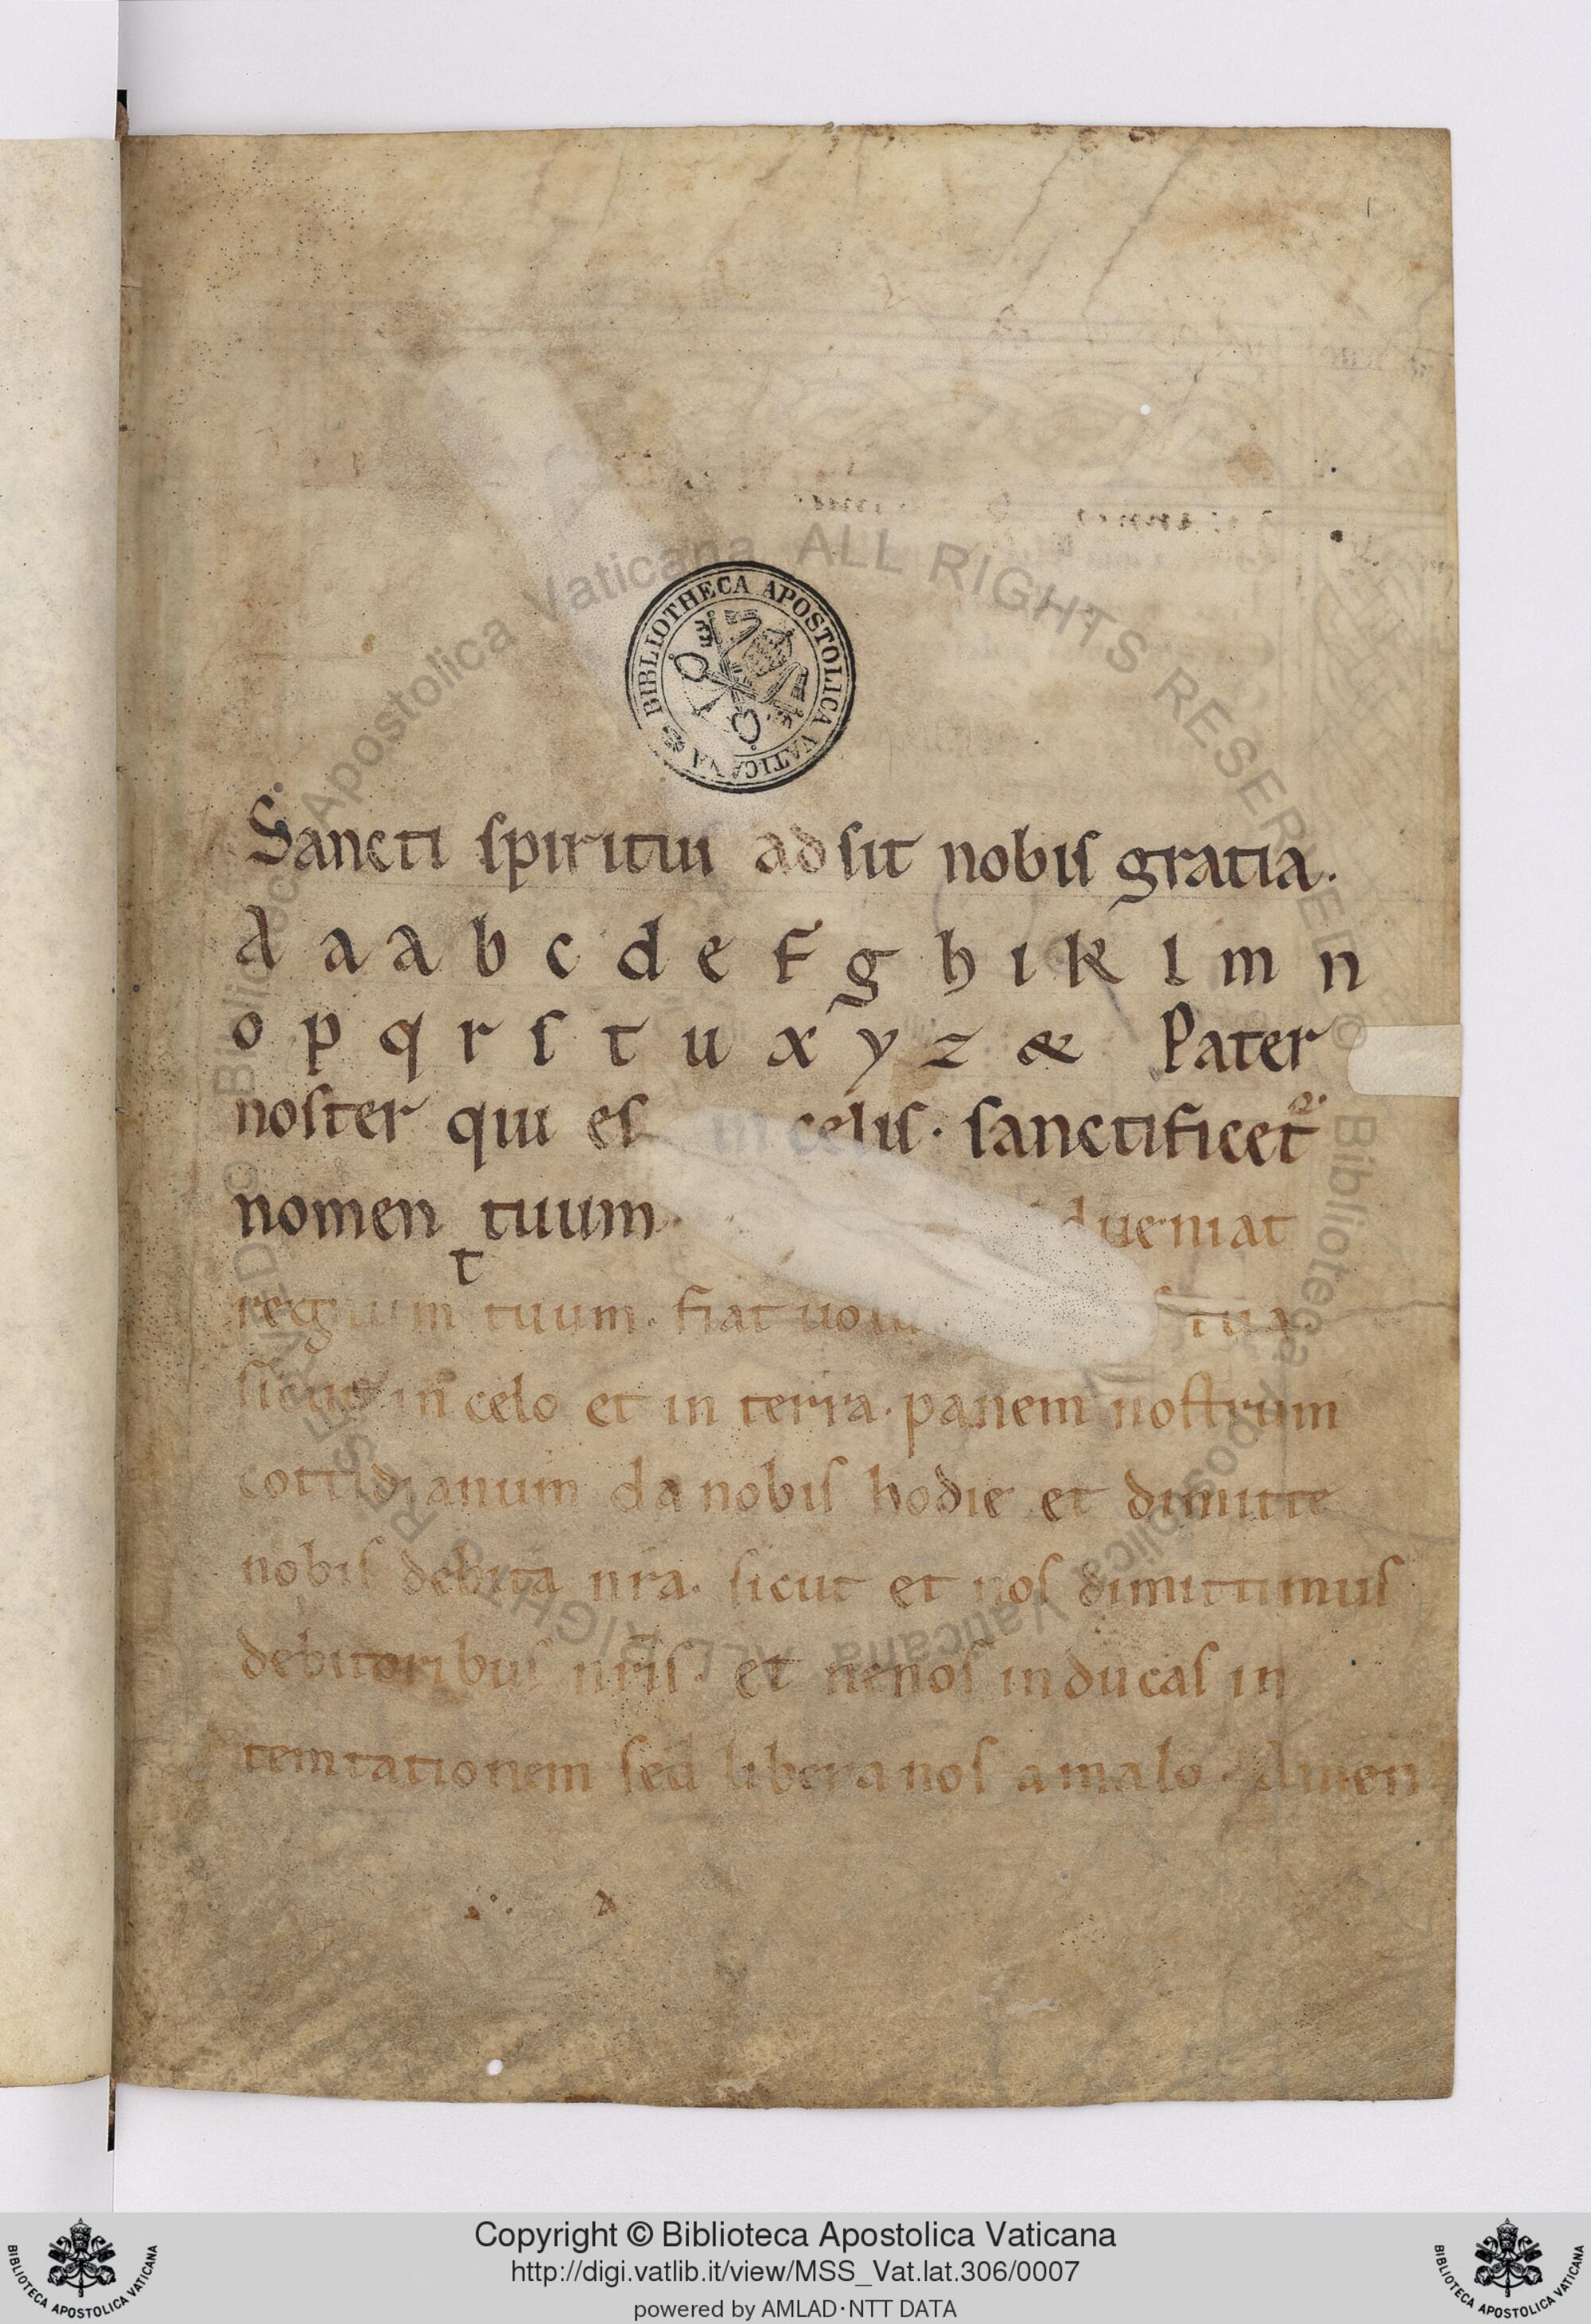 BIBLIOTHECA APOSTOLICA VATICANA
Sancti spiritus adsit nobis gratia.
A a a b c d e f g h i k l m n
o p q r s t u x y z & Pater
noster qui es in celis. sanctificet᷑
nomen tuum. adueniat
t
regnum tuum. fiat uolu s tua.
sicut in celo et in terra. panem nostrum
cottidianum da nobis hodie et dimitte
nobis debita nra. sicut et nos dimittimus
debitoribus nris. et ne nos inducas in
temtationem sed libera nos a malo. Amen
© Biblioteca Apostolica Vaticana ALL RIGHTS RESERVED
© Biblioteca Apostolica Vaticana ALL RIGHTS RESERVED
Copyright © Biblioteca Apostolica Vaticana
http://digi.vatlib.it/view/MSS_Vat.lat.306/0007
powered by AMLAD·NTT DATA
BIBLIOTECA APOSTOLICA VATICANA
BIBLIOTECA APOSTOLICA VATICANA